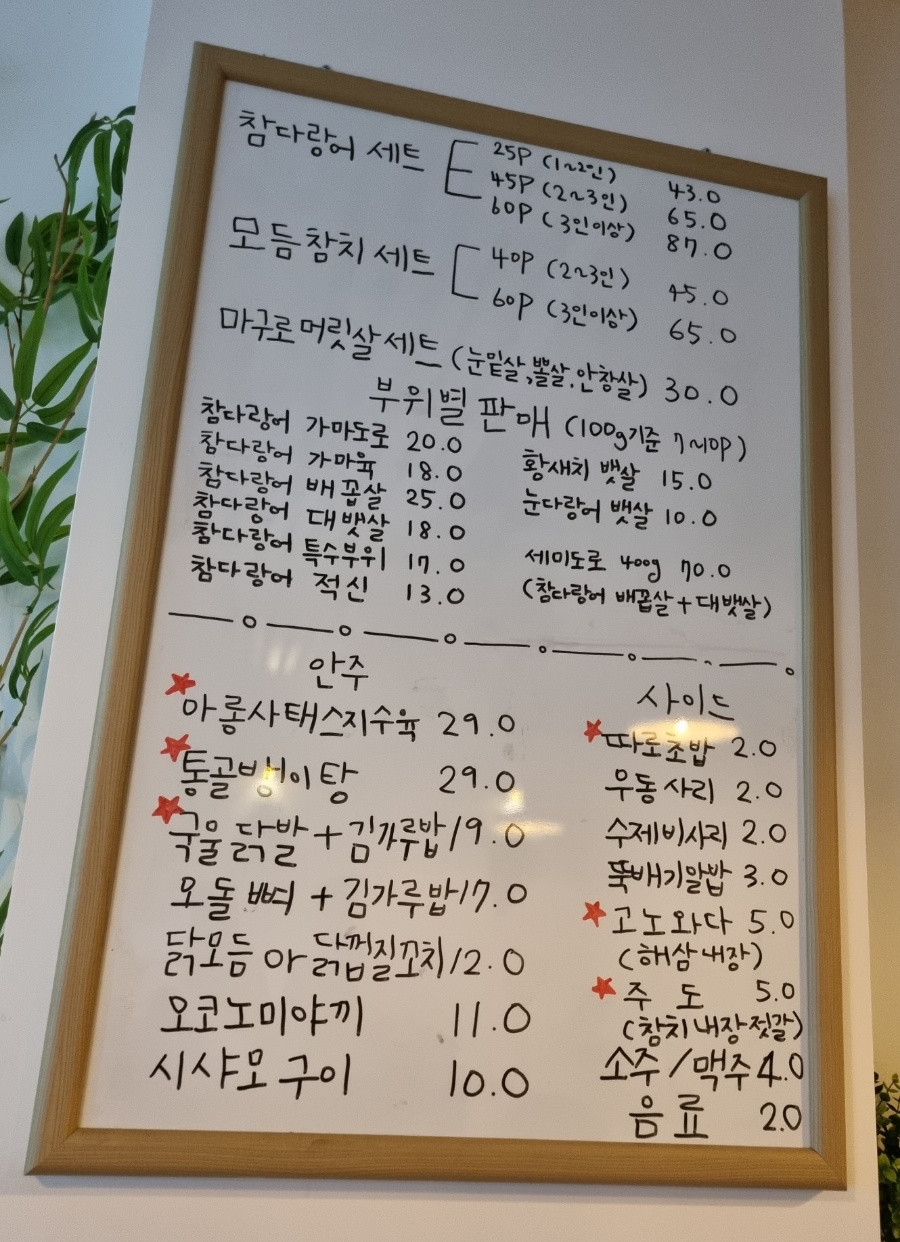 참다랑어 세트 25P (1~2인) 43.0
45P (2~3인) 65.0
60P (3인이상) 87.0
모듬참치 세트 40P (2~3인) 45.0
60P (3인이상) 65.0
마구로 머릿살 세트 (눈밑살,뽈살,안창살) 30.0
부위별 판매 (100g기준 7~10P)
참다랑어 가마도로 20.0
참다랑어 가마육 18.0
참다랑어 배꼽살 25.0
참다랑어 대뱃살 18.0
참다랑어 특수부위 17.0
참다랑어 적신 13.0
황새치 뱃살 15.0
눈다랑어 뱃살 10.0
세미도로 400g 70.0
(참다랑어 배꼽살+대뱃살)
안주
아롱사태스지수육 29.0
통골뱅이탕 29.0
국물닭발+김가루밥 19.0
오돌뼈+김가루밥 17.0
닭모듬 or 닭껍질꼬치 12.0
오코노미야끼 11.0
시샤모구이 10.0
사이드
따로초밥 2.0
우동사리 2.0
수제비사리 2.0
뚝배기알밥 3.0
고노와다 5.0
(해삼내장)
주도 5.0
(참치내장젓갈)
소주/맥주 4.0
음료 2.0